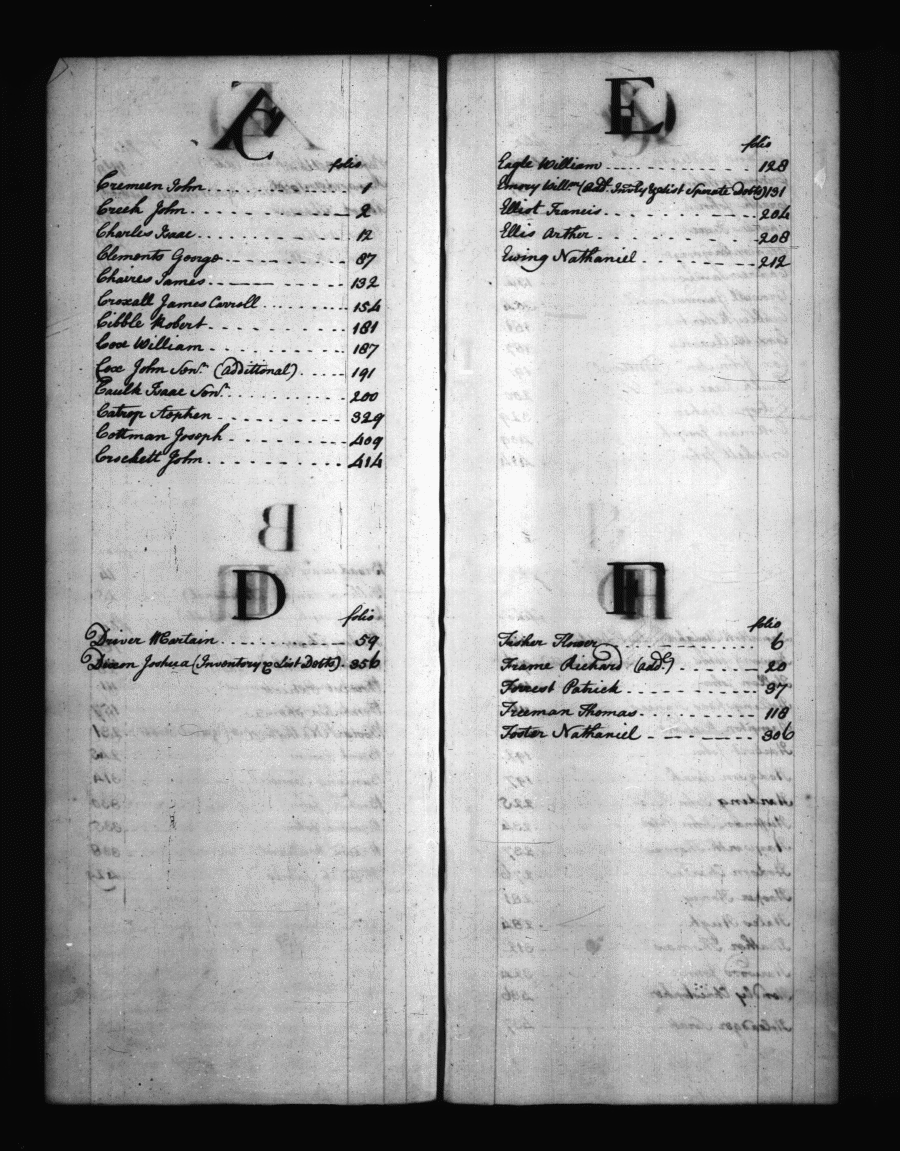 C
folio
Cremeen John 1
Creek John 2
Charles Isaac 12
Clements George 87
Chaires James 132
Croxall James Carroll 154
Cibble Robert 181
Coxe William 187
Cox John Sen.r (additional) 191
Caulk Isaac Sen.r 200
Catrop Stephen 329
Cottman Joseph 409
Crockett John 414
B
D
folio
Driver Martain 59
Dixon Joshua (Inventory & List Debts) 356
E
folio
Eagle William 128
Emory Will.m (ad.l Inv.ly & list Sperate Debts) 131
Elliot Francis 204
Ellis Arther 208
Ewing Nathaniel 212
F
folio
Fisher Flower 6
Frame Richard (ad.l) 20
Forrest Patrick 37
Freeman Thomas 118
Foster Nathaniel 306